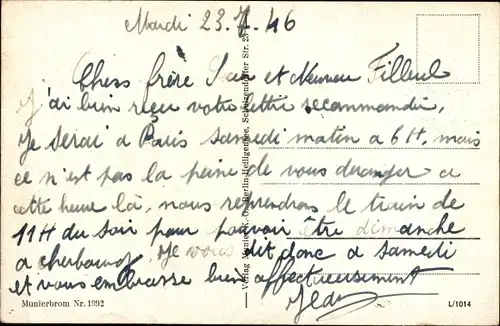 Mardi 23.7.46
Chers frère Sœur et Neveu Filleul
J'ai bien reçu votre lettre recommandée,
Je serai a Paris samedi matin a 6H, mais
ce n'est pas la peine de vous deranger a
cette heure là, nous reprendrons le train de
11H du soir pour pouvoir être dimanche
a cherbourg, Je vous dit donc a samedi
et vous embrasse bien affectueusement
Munierbrom Nr. 1992
L/1014